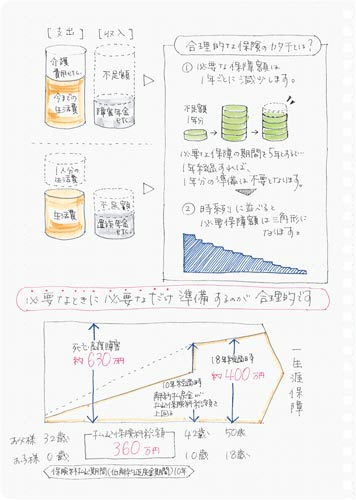 [支出] [収入]
介護
費用など
今までの
生活費
不足額
障害年金
etc.
1人分の
生活費
生活費
不足額
遺族年金
etc.
合理的な保険のカタチとは?
① 必要な保障額は
1年ごとに減少します。
不足額
1年分
必要な保障の期間を5年とすると…
1年経過すれば、
1年分の準備は不要となります。
② 時系列に並べると
必要保障額は三角形に
なります。
必要なときに必要なだけ準備するのが合理的です
死亡・高度障害
約630万円
10年経過時
解約払戻金が
払込保険料総額を
上回る
18年経過時
約400万円
一生涯保障
払込保険料総額
360万円
お父様 32歳 42歳 50歳
お子様 0歳 10歳 18歳
保険料払込期間(低解約返戻金期間)10年